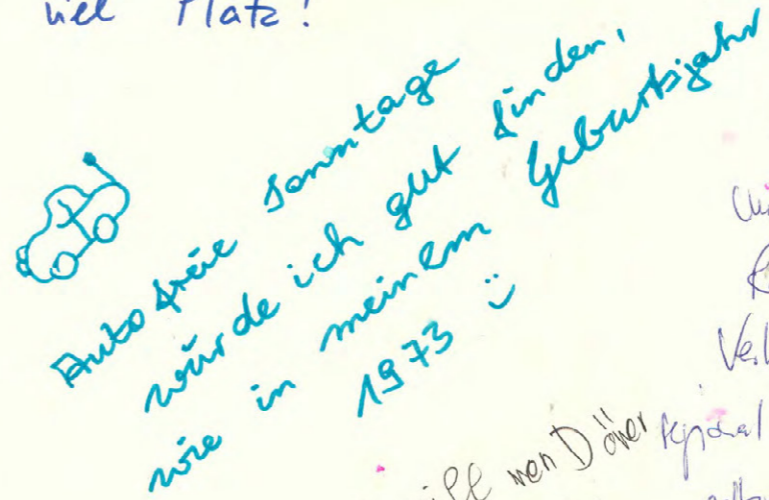 viel Platz!
Autofreie Sonntage
würde ich gut finden,
wie in meinem Geburtsjahr
1973 :)
men Döner